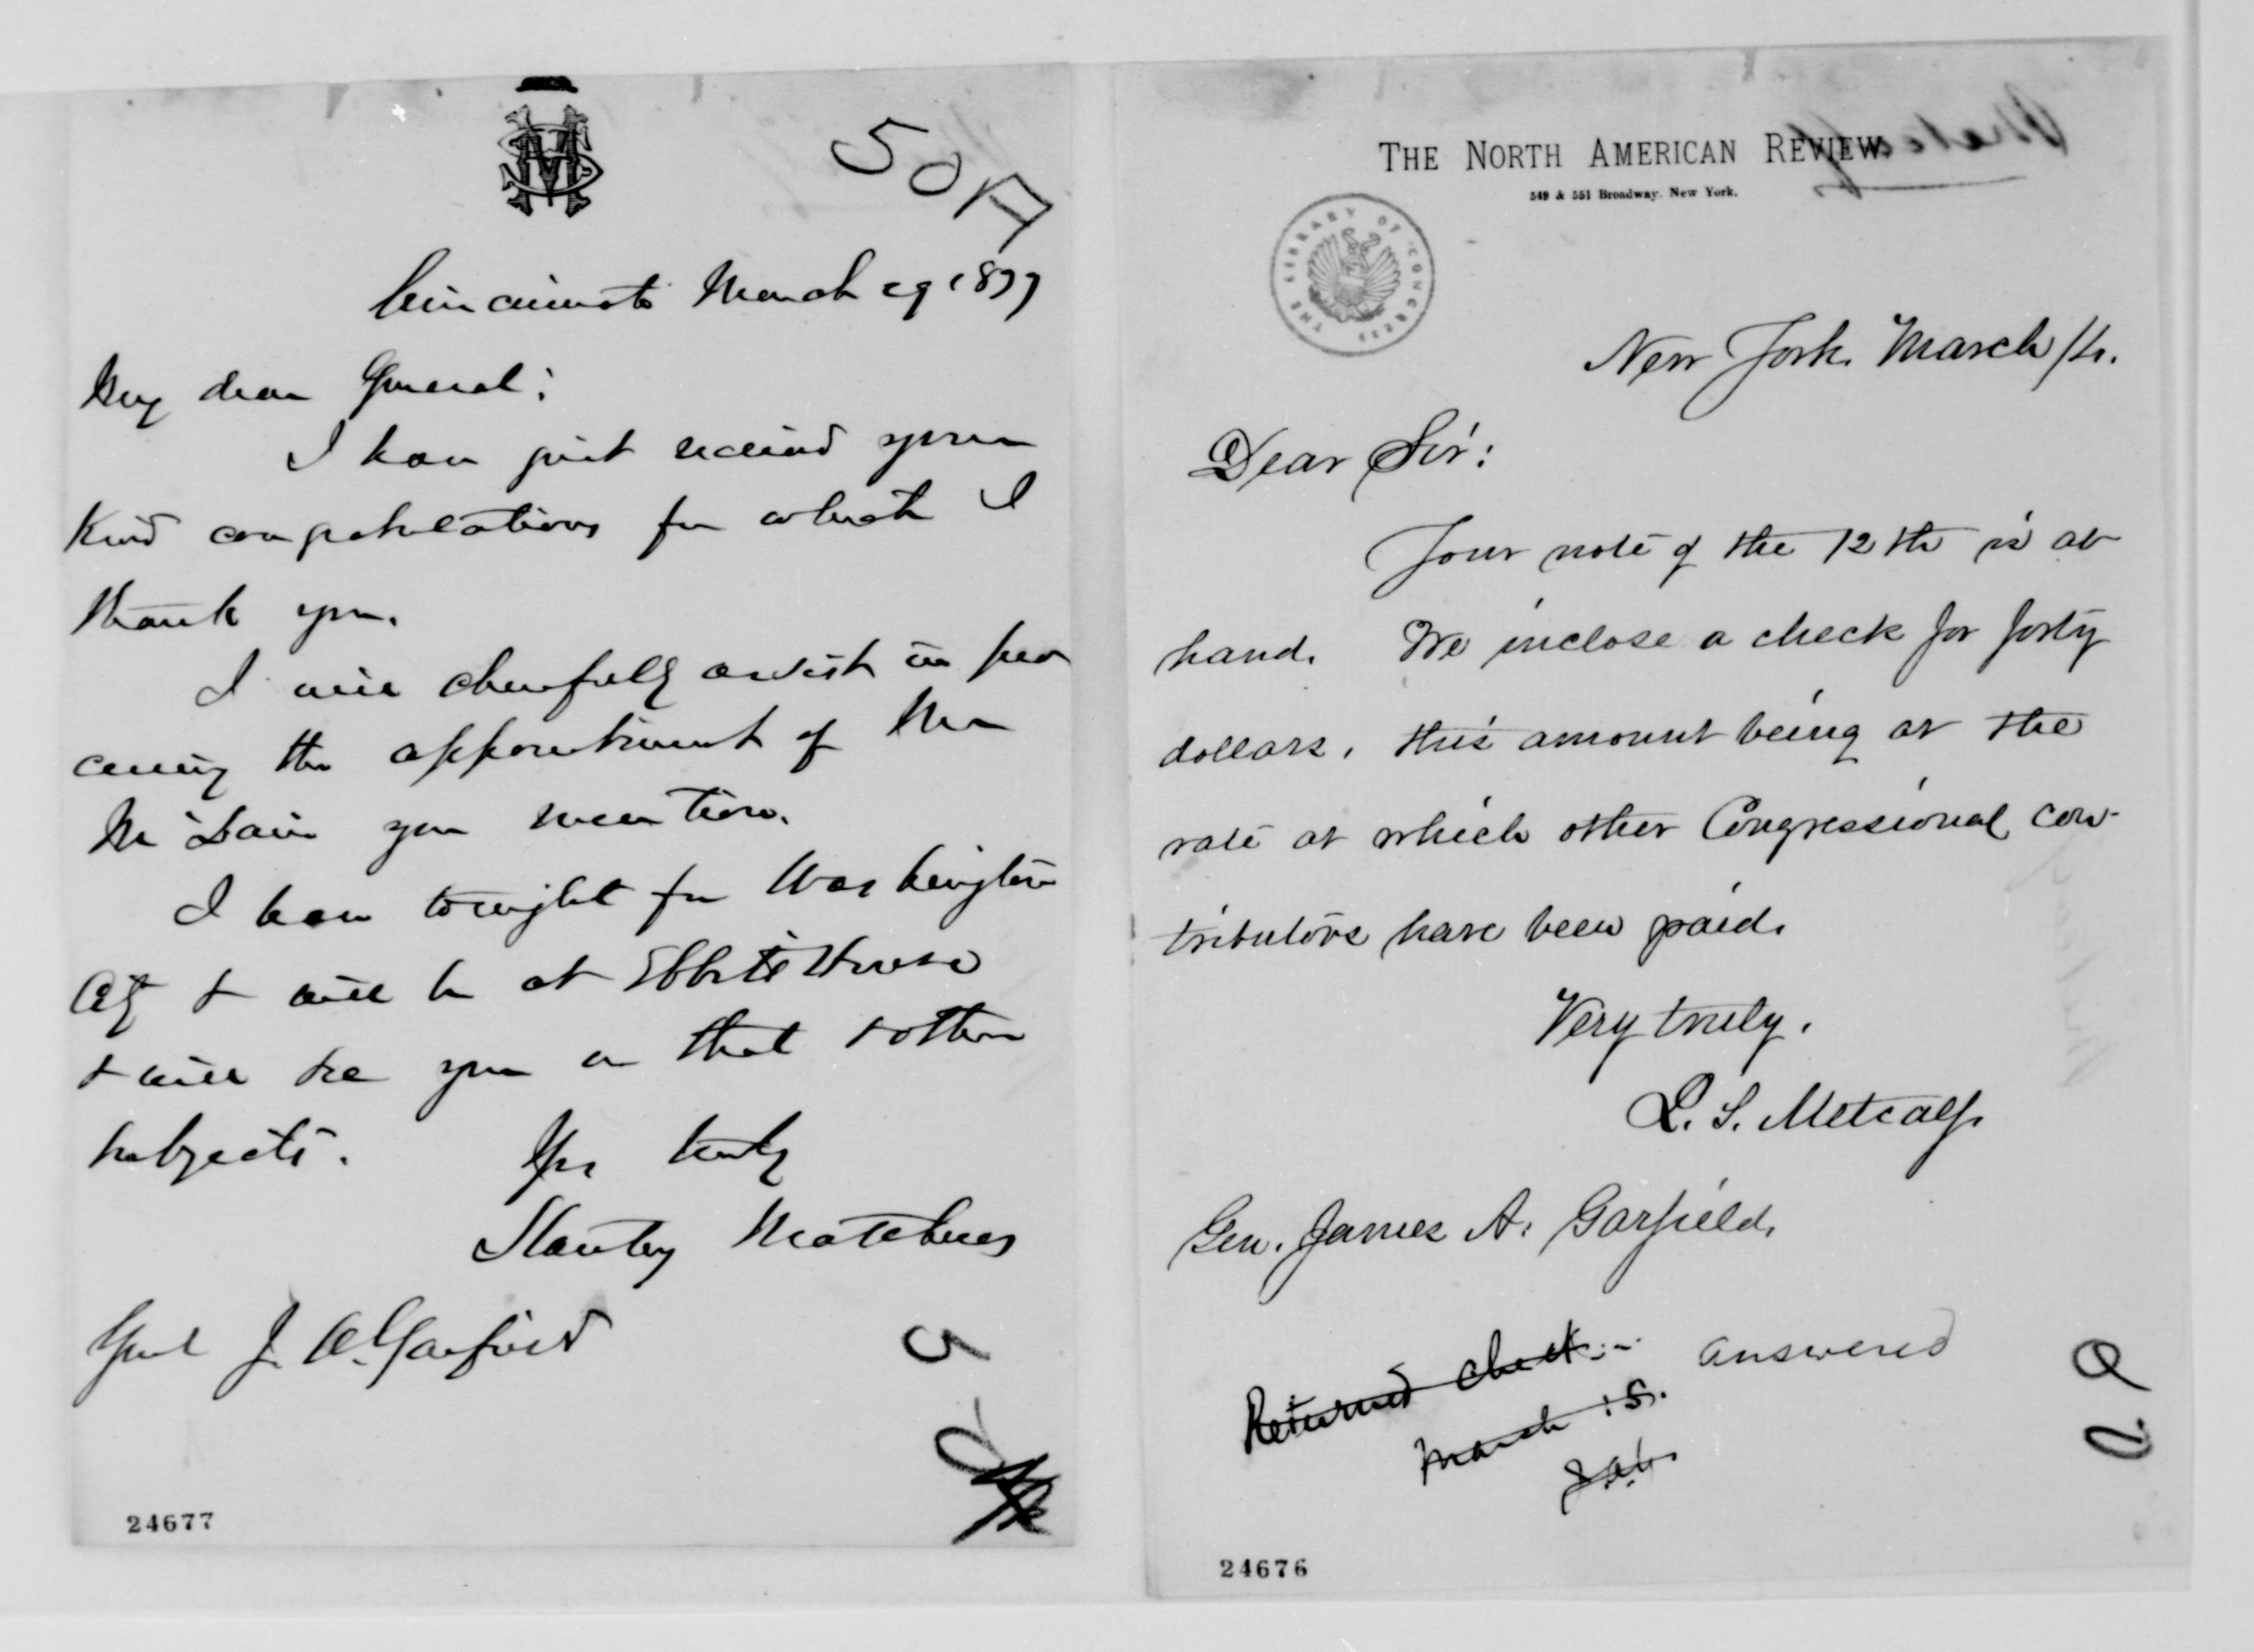 50A
Cincinnati March 29 1877
My dear General:
I have just received your
kind congratulations for which I
thank you.
I will cheerfully assist in pro
curing the appointment of Mr
McLain you mention.
I leave tonight for Washington
City & will be at Ebbitt House
& will see you on that & other
subjects.
Yrs truly
Stanley Matthews
Genl J. A. Garfield
24677
THE NORTH AMERICAN REVIEW.
549 & 551 Broadway. New York.
THE LIBRARY OF CONGRESS
New York. March
Dear Sir:
Your note of the 12th is at
hand. We inclose a check for forty
dollars, this amount being at the
rate at which other Congressional con-
tributors have been paid.
Very truly,
L. S. Metcalf.
Gen. James A. Garfield.
Returned check answered
March 15.
24676